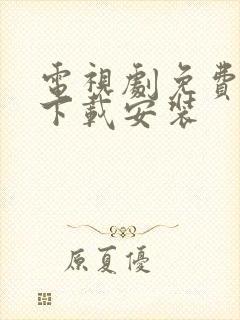 電視劇免費
下載安裝
原夏優